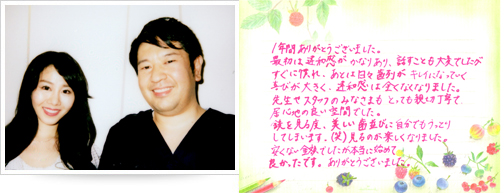 1年間ありがとうございました。
最初は違和感がかなりあり、話すことも大変でしたが
すぐに慣れ、あとは日々歯列がキレイになっていく
喜びが大きく、違和感は全くなくなりました。
先生やスタッフのみなさまもとっても親切丁寧で
居心地の良い空間でした。
鏡を見る度、美しい歯並びに自分でもうっとり
してしまいます。(笑)見るのが楽しくなりました。
安くない金額でしたが本当に始めて
良かったです。ありがとうございました。